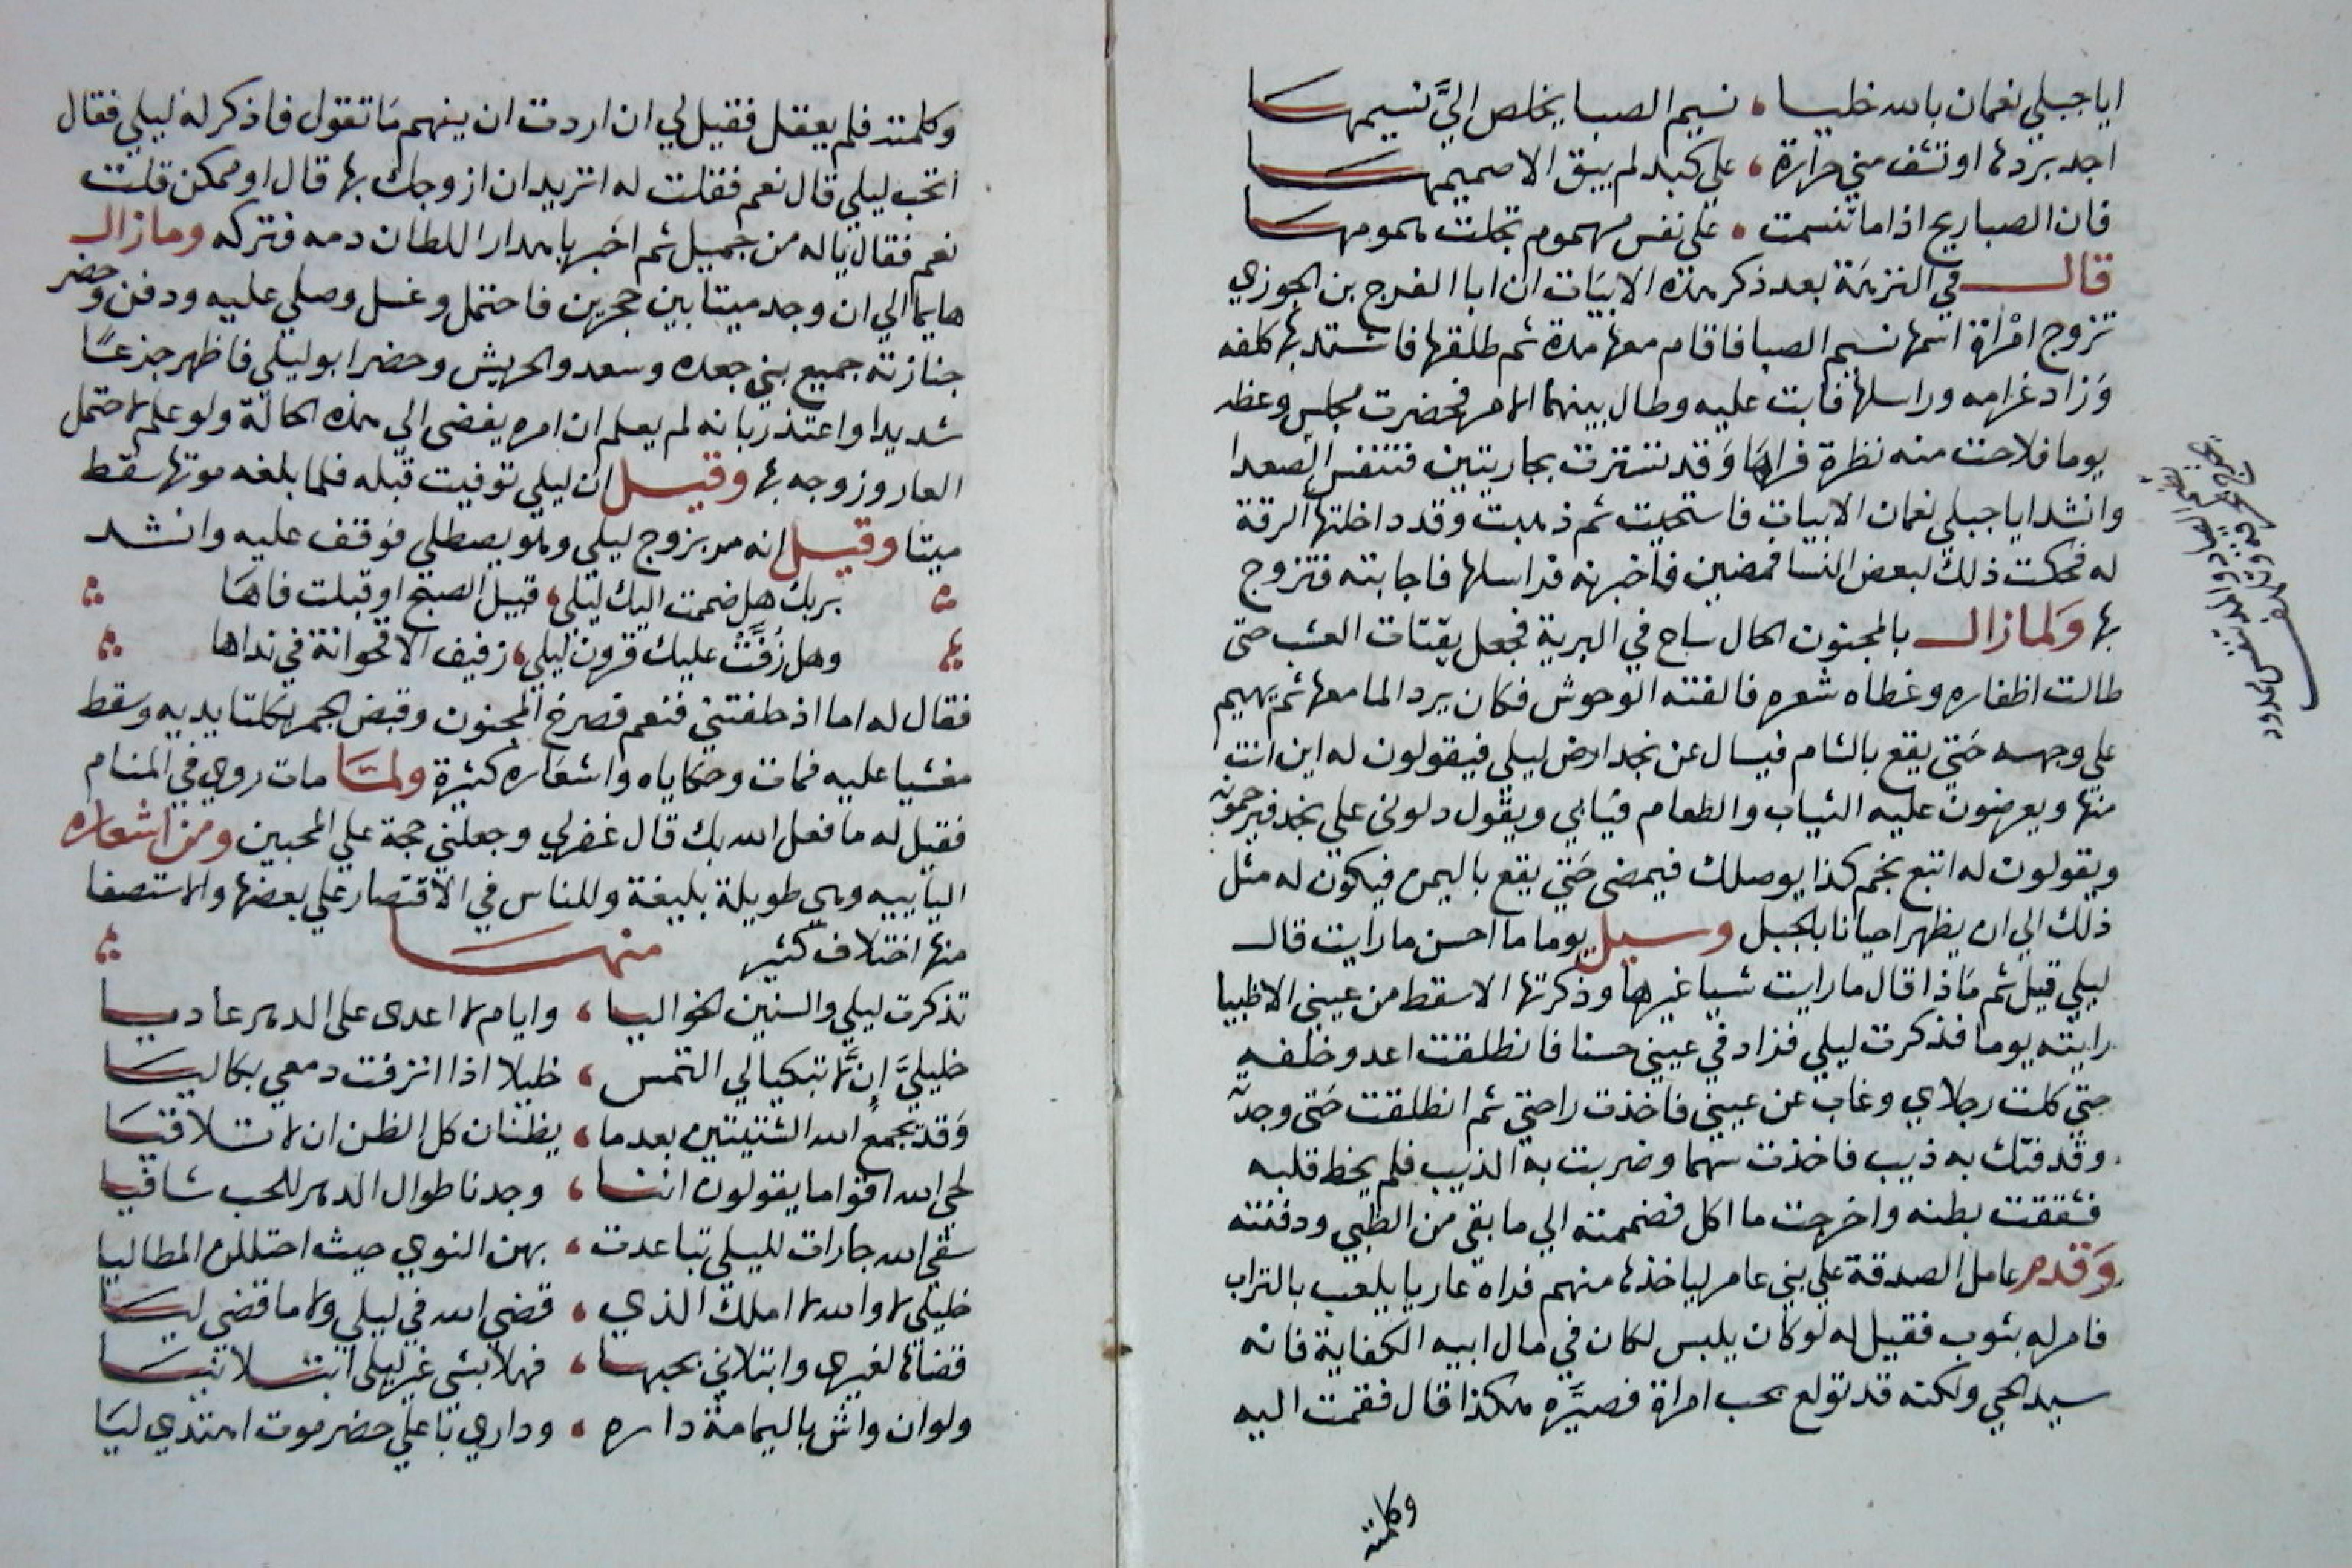 ايا جبلي نعمان بالله خليا ، نسيم الصبا يخلص اليَّ نسيمها
اجد بردها او تشف مني حرارة ، علي كبد لم يبق الا صميمها
فان الصبا ريح اذا ما تنسمت ، علي نفس مهموم تجلت همومها
قال في النزهة بعد ذكر هذه الابيات ان ابا الفرج بن الجوزي
تزوج امراة اسمها نسيم الصبا فاقام معها مدة ثم طلقها فاشتد بها كلفه
وزاد غرامه وراسلها فابت عليه وطال بينهما الامر فحضرت مجلس وعظه
يوما فلاحت منه نظرة فراها وقد تسترت بجاريتين فتنفس الصعدا
وانشد ايا جبلي نعمان الابيات فاستحيت ثم ذهبت وقد داخلتها الرقة
له فحكت ذلك لبعض النسا فمضين فاخبرنه فراسلها فاجابته فتزوج
بها ولما زال بالمجنون الحال ساح في البرية فجعل يقتات العشب حتى
طالت اظفاره وغطاه شعره فالفته الوحوش فكان يرد الما معها ثم يهيم
علي وجهه حتي يقع بالشام فيسال عن نجد ارض ليلي فيقولون له اين انت
منها ويعرضون عليه الثياب والطعام فيابي ويقول دلوني على نجد فيرحمونه
ويقولون له اتبع نجم كذا يوصلك فيمضي حتي يقع باليمن فيكون له مثل
ذلك الي ان يظهر احيانا بالجبل وسيل يوما ما احسن ما رايت قال
ليلي قيل ثم ماذا قال ما رايت شيا غيرها وذكرتها الا سقط من عيني الا ظبيا
رايته يوما فذكرت ليلي فزاد في عيني حسنا فانطلقت اعدو خلفه
حتي كلت رجلاي وغاب عن عيني فاخذت راحتي ثم انطلقت حتي وجدته
وقد فتك به ذيب فاخذت سهما وضربت به الذيب فلم يخط قلبه
فشققت بطنه واخرجت ما اكل فضممته الي ما بقي من الظبي ودفنته
وقدم عامل الصدقة علي بني عامر لياخذها منهم فراه عاريا يلعب بالتراب
فامر له بثوب فقيل له لو كان يلبس لكان في مال ابيه الكفاية فانه
سيد الحي ولكنه قد تولع بحب امراة فصيَّره هكذا قال فقمت اليه
وكلمته
وكلمته فلم يعقل فقيل لي ان اردت ان يفهم ما تقول فاذكر له ليلي فقال
اتحب ليلي قال نعم فقلت له اتريد ان ازوجك بها قال او ممكن قلت
نعم فقال ياله من جميل ثم اخبر باهدار السلطان دمه فتركه وما زال
هايما الي ان وجد ميتا بين حجرين فاحتمل وغسل وصلي عليه ودفن وحضر
جنازته جميع بني جعده وسعد والحريش وحضر ابو ليلي فاظهر جزعا
شديدا واعتذر بانه لم يعلم ان امره يفضى الي هذه الحالة ولو علم لاحتمل
العار وزوجه بها وقيل ان ليلي توفيت قبله فلما بلغه موتها سقط
ميتا وقيل انه مر بزوج ليلي وهو يصطلي فوقف عليه وانشد
بربك هل ضممت اليك ليلى ، قبيل الصبح او قبلت فاها
وهل زُفَّتْ عليك قرون ليلي ، زفيف الاقحوانة في نداها
فقال له اما اذ حلفتني فنعم فصرخ المجنون وقبض الجمر بكلتا يديه وسقط
مغشيا عليه فمات وحكاياه واشعاره كثيرة ولما مات روي في المنام
فقيل له ما فعل الله بك قال غفر لي وجعلني حجة علي المحبين ومن اشعاره
الياييه وهي طويلة بليغة وللناس في الاقتصار علي بعضها والاستصفا
منها اختلاف كثير منها
تذكرت ليلي والسنين الخواليا ، وايام لا اعدى على الدهر عاديا
خليليَّ إن لا تبكيا لي التمس ، خليلا اذا انزفت دمعي بكاليا
وقد يجمع الله الشتيتين بعد ما ، يظنان كل الظن ان لا تلاقيا
لحي الله اقواما يقولون اننا ، وجدنا طوال الدهر للحب شافيا
سقي الله جارات لليلي تباعدت ، بهن النوي حيث احتللن المطاليا
خليلي لا والله لا املك الذي ، قضي الله في ليلي ولا ما قضي ليا
قضاها لغيري وابتلاني بحبها ، فهلا بشي غير ليلي ابتلانيا
ولو ان واش باليمامة داره ، وداري باعلي حضرموت اهتدي ليا